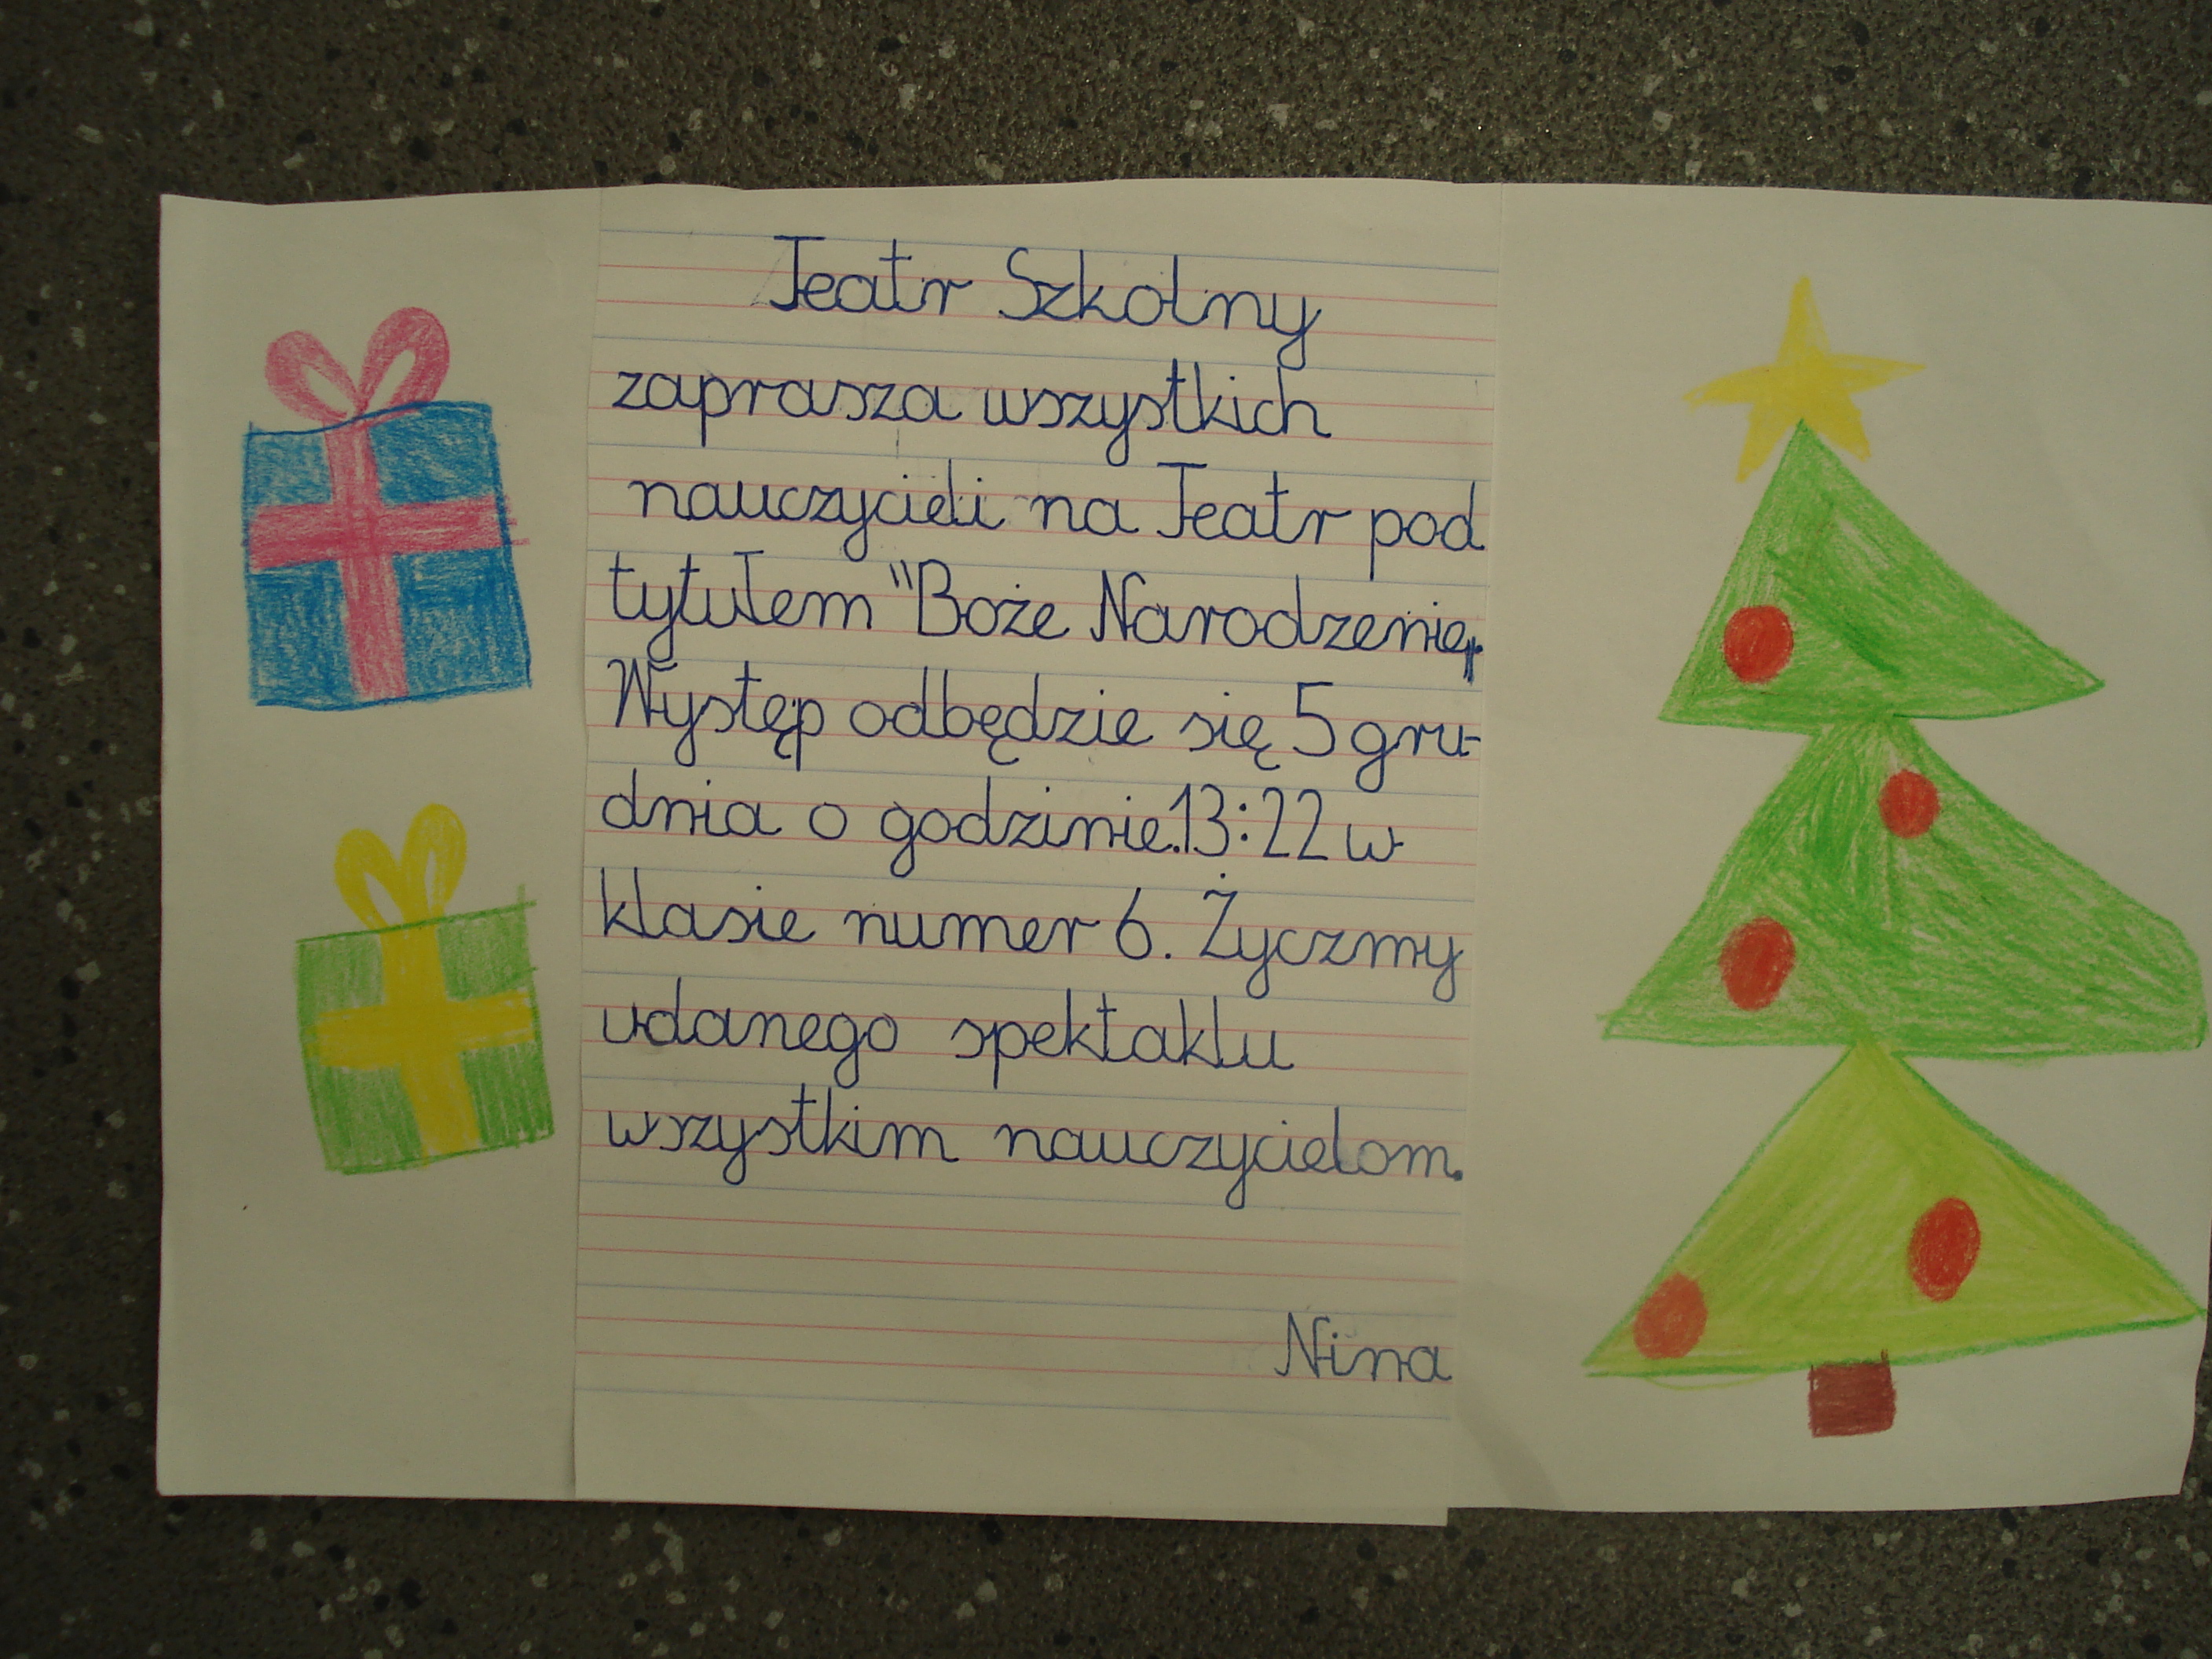 Teatr Szkolny
zaprasza wszystkich
nauczycieli na Teatr pod
tytułem "Boże Narodzenie".
Występ odbędzie się 5 gru-
dnia o godzinie.13:22 w
klasie numer 6. Życzmy
udanego spektaklu
wszystkim nauczycielom.
Nina